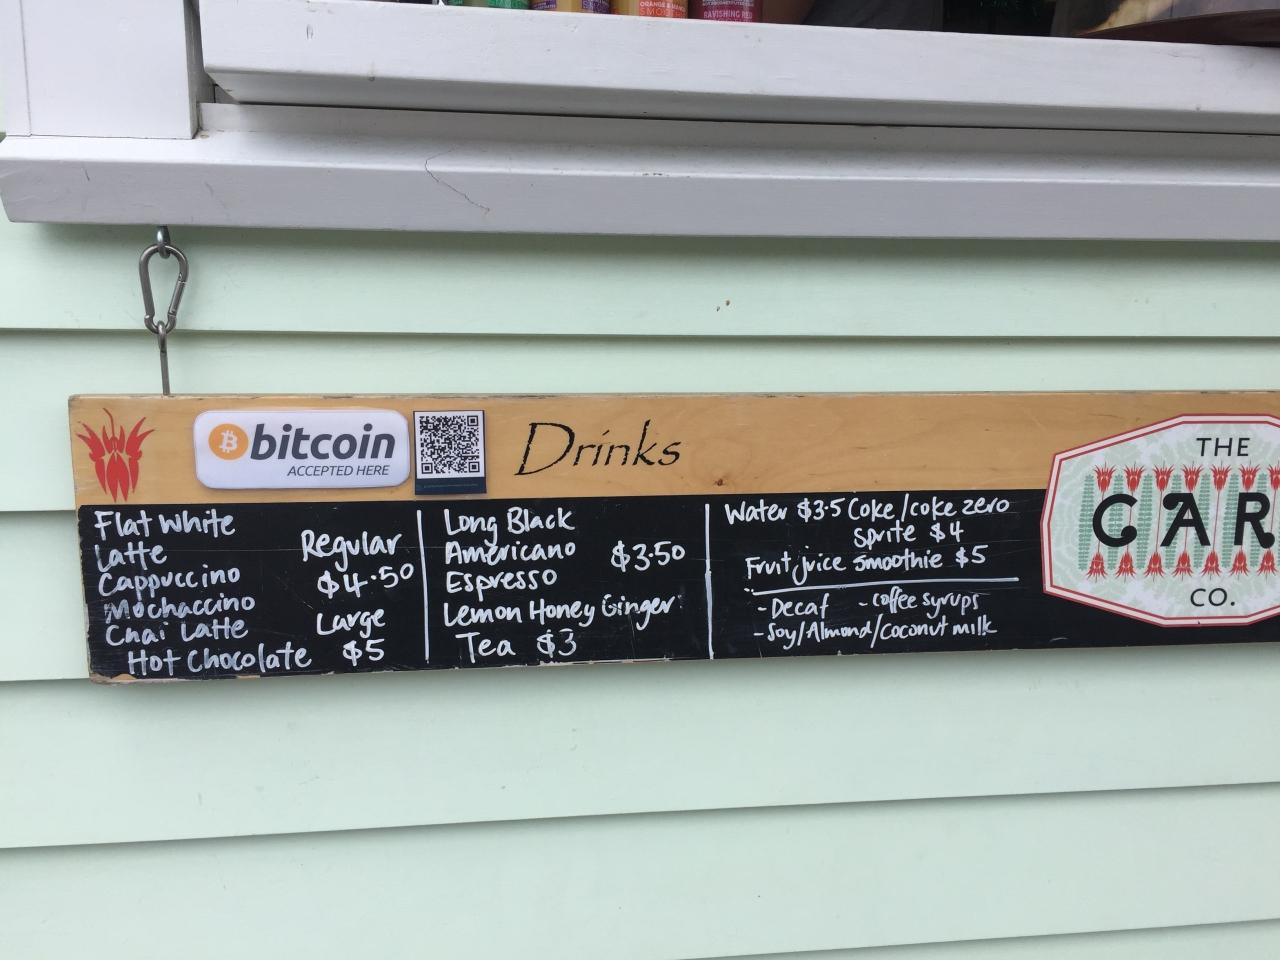 ORANGE & MANGO
SMOOTHIE
RAVISHING RED
bitcoin
ACCEPTED HERE
Drinks
Flat White
Latte
Cappuccino
Mochaccino
Chai Latte
Hot Chocolate
Regular
$4.50
Large
$5
Long Black
Americano $3.50
Espresso
Lemon Honey Ginger
Tea $3
Water $3.5 Coke/coke zero
Sprite $4
Fruit juice smoothie $5
-Decaf -coffee syrups
-Soy/Almond/coconut milk
THE
CAR
CO.